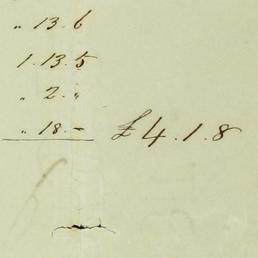 „ 13. 6
1. 13. 5
„ 2. „
„ 18. – £4. 1. 8